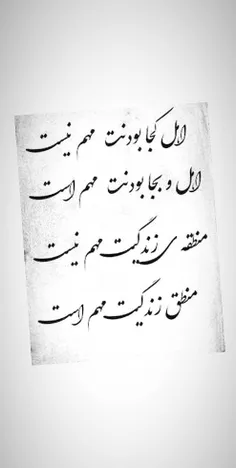 اهل کجا بودنت مهم نیست
اهل و بجا بودنت مهم است
منطقه ی زندگیت مهم نیست
منطق زندگیت مهم است